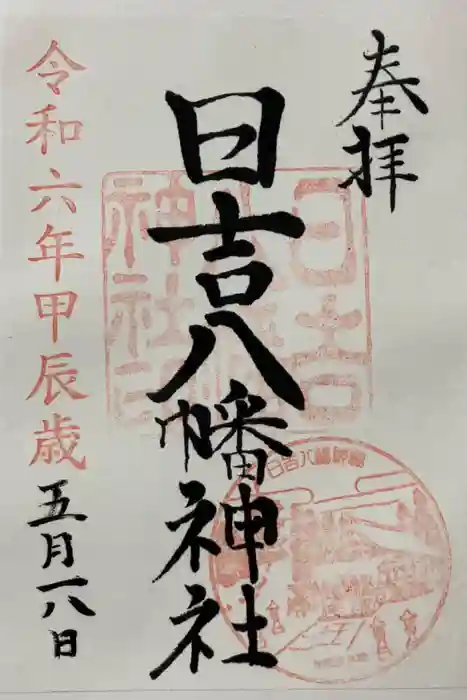 奉拝
日吉八幡神社
令和六年甲辰歳
五月一八日
日吉八幡神社